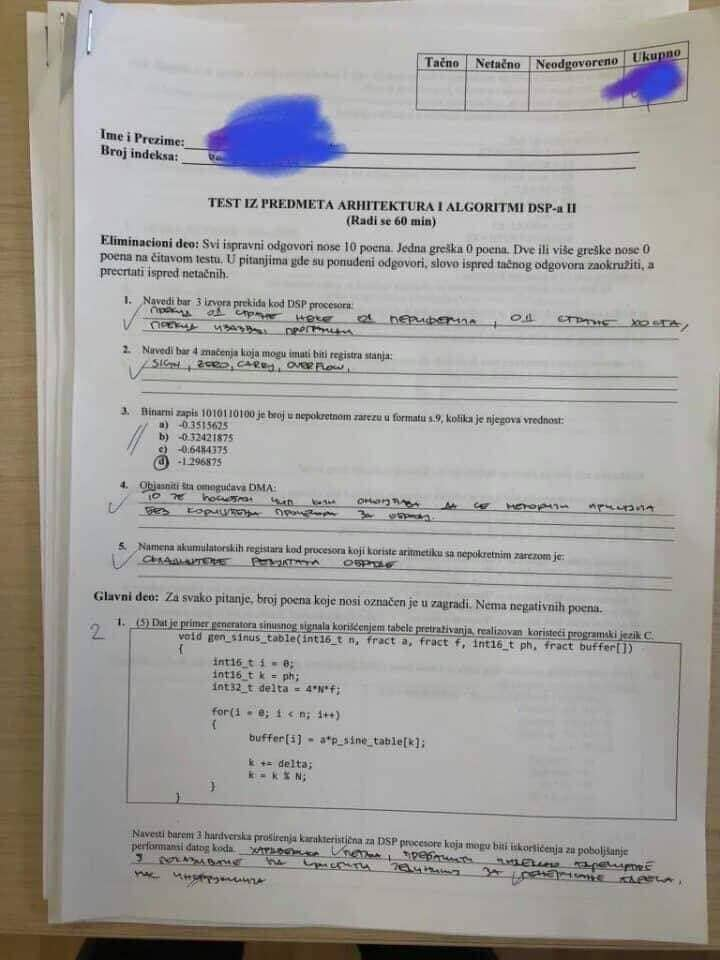 Tačno Netačno Neodgovoreno Ukupno
Ime i Prezime:
Broj indeksa:
TEST IZ PREDMETA ARHITEKTURA I ALGORITMI DSP-a II
(Radi se 60 min)
Eliminacioni deo: Svi ispravni odgovori nose 10 poena. Jedna greška 0 poena. Dve ili više greške nose 0
poena na čitavom testu. U pitanjima gde su ponuđeni odgovori, slovo ispred tačnog odgovora zaokružiti, a
precrtati ispred netačnih.
1. Navedi bar 3 izvora prekida kod DSP procesora:
ПРЕКИД ОД СТРАНЕ НЕКЕ ОД ПЕРИФЕРИЈА, ОД СТРАНЕ ХОСТА,
ПРЕКИД ИЗАЗВАН
2. Navedi bar 4 značenja koja mogu imati biti registra stanja:
SIGN, ZERO, CARRY, OVERFLOW,
3. Binarni zapis 1010110100 je broj u nepokretnom zarezu u formatu s.9, kolika je njegova vrednost:
a) -0.3515625
b) -0.32421875
c) -0.6484375
d) -1.296875
4. Objasniti šta omogućava DMA:
ТО ЈЕ ПОСЕБАН ЧИП КОЈИ ОМОГУЋАВА ДА СЕ МЕМОРИЈИ
БЕЗ КОРИШЋЕЊА ПРОЦЕСОРА ЗА ОБРАДУ.
5. Namena akumulatorskih registara kod procesora koji koriste aritmetiku sa nepokretnim zarezom je:
СКЛАДИШТЕЊЕ РЕЗУЛТАТА ОБРАДЕ
Glavni deo: Za svako pitanje, broj poena koje nosi označen je u zagradi. Nema negativnih poena.
2 1. (5) Dat je primer generatora sinusnog signala korišćenjem tabele pretraživanja, realizovan koristeći programski jezik C.
void gen_sinus_table(int16_t n, fract a, fract f, int16_t ph, fract buffer[])
{
int16_t i = 0;
int16_t k = ph;
int32_t delta = 4*N*f;
for(i = 0; i < n; i++)
{
buffer[i] = a*p_sine_table[k];
k += delta;
k = k % N;
}
}
Navesti barem 3 hardverska proširenja karakteristična za DSP procesore koja mogu biti iskorišćenja za poboljšanje
performansi datog koda. ХАРДВЕРСКА ПЕТЉА,
ЗА ГЕНЕРИСАЊЕ АДРЕСА,